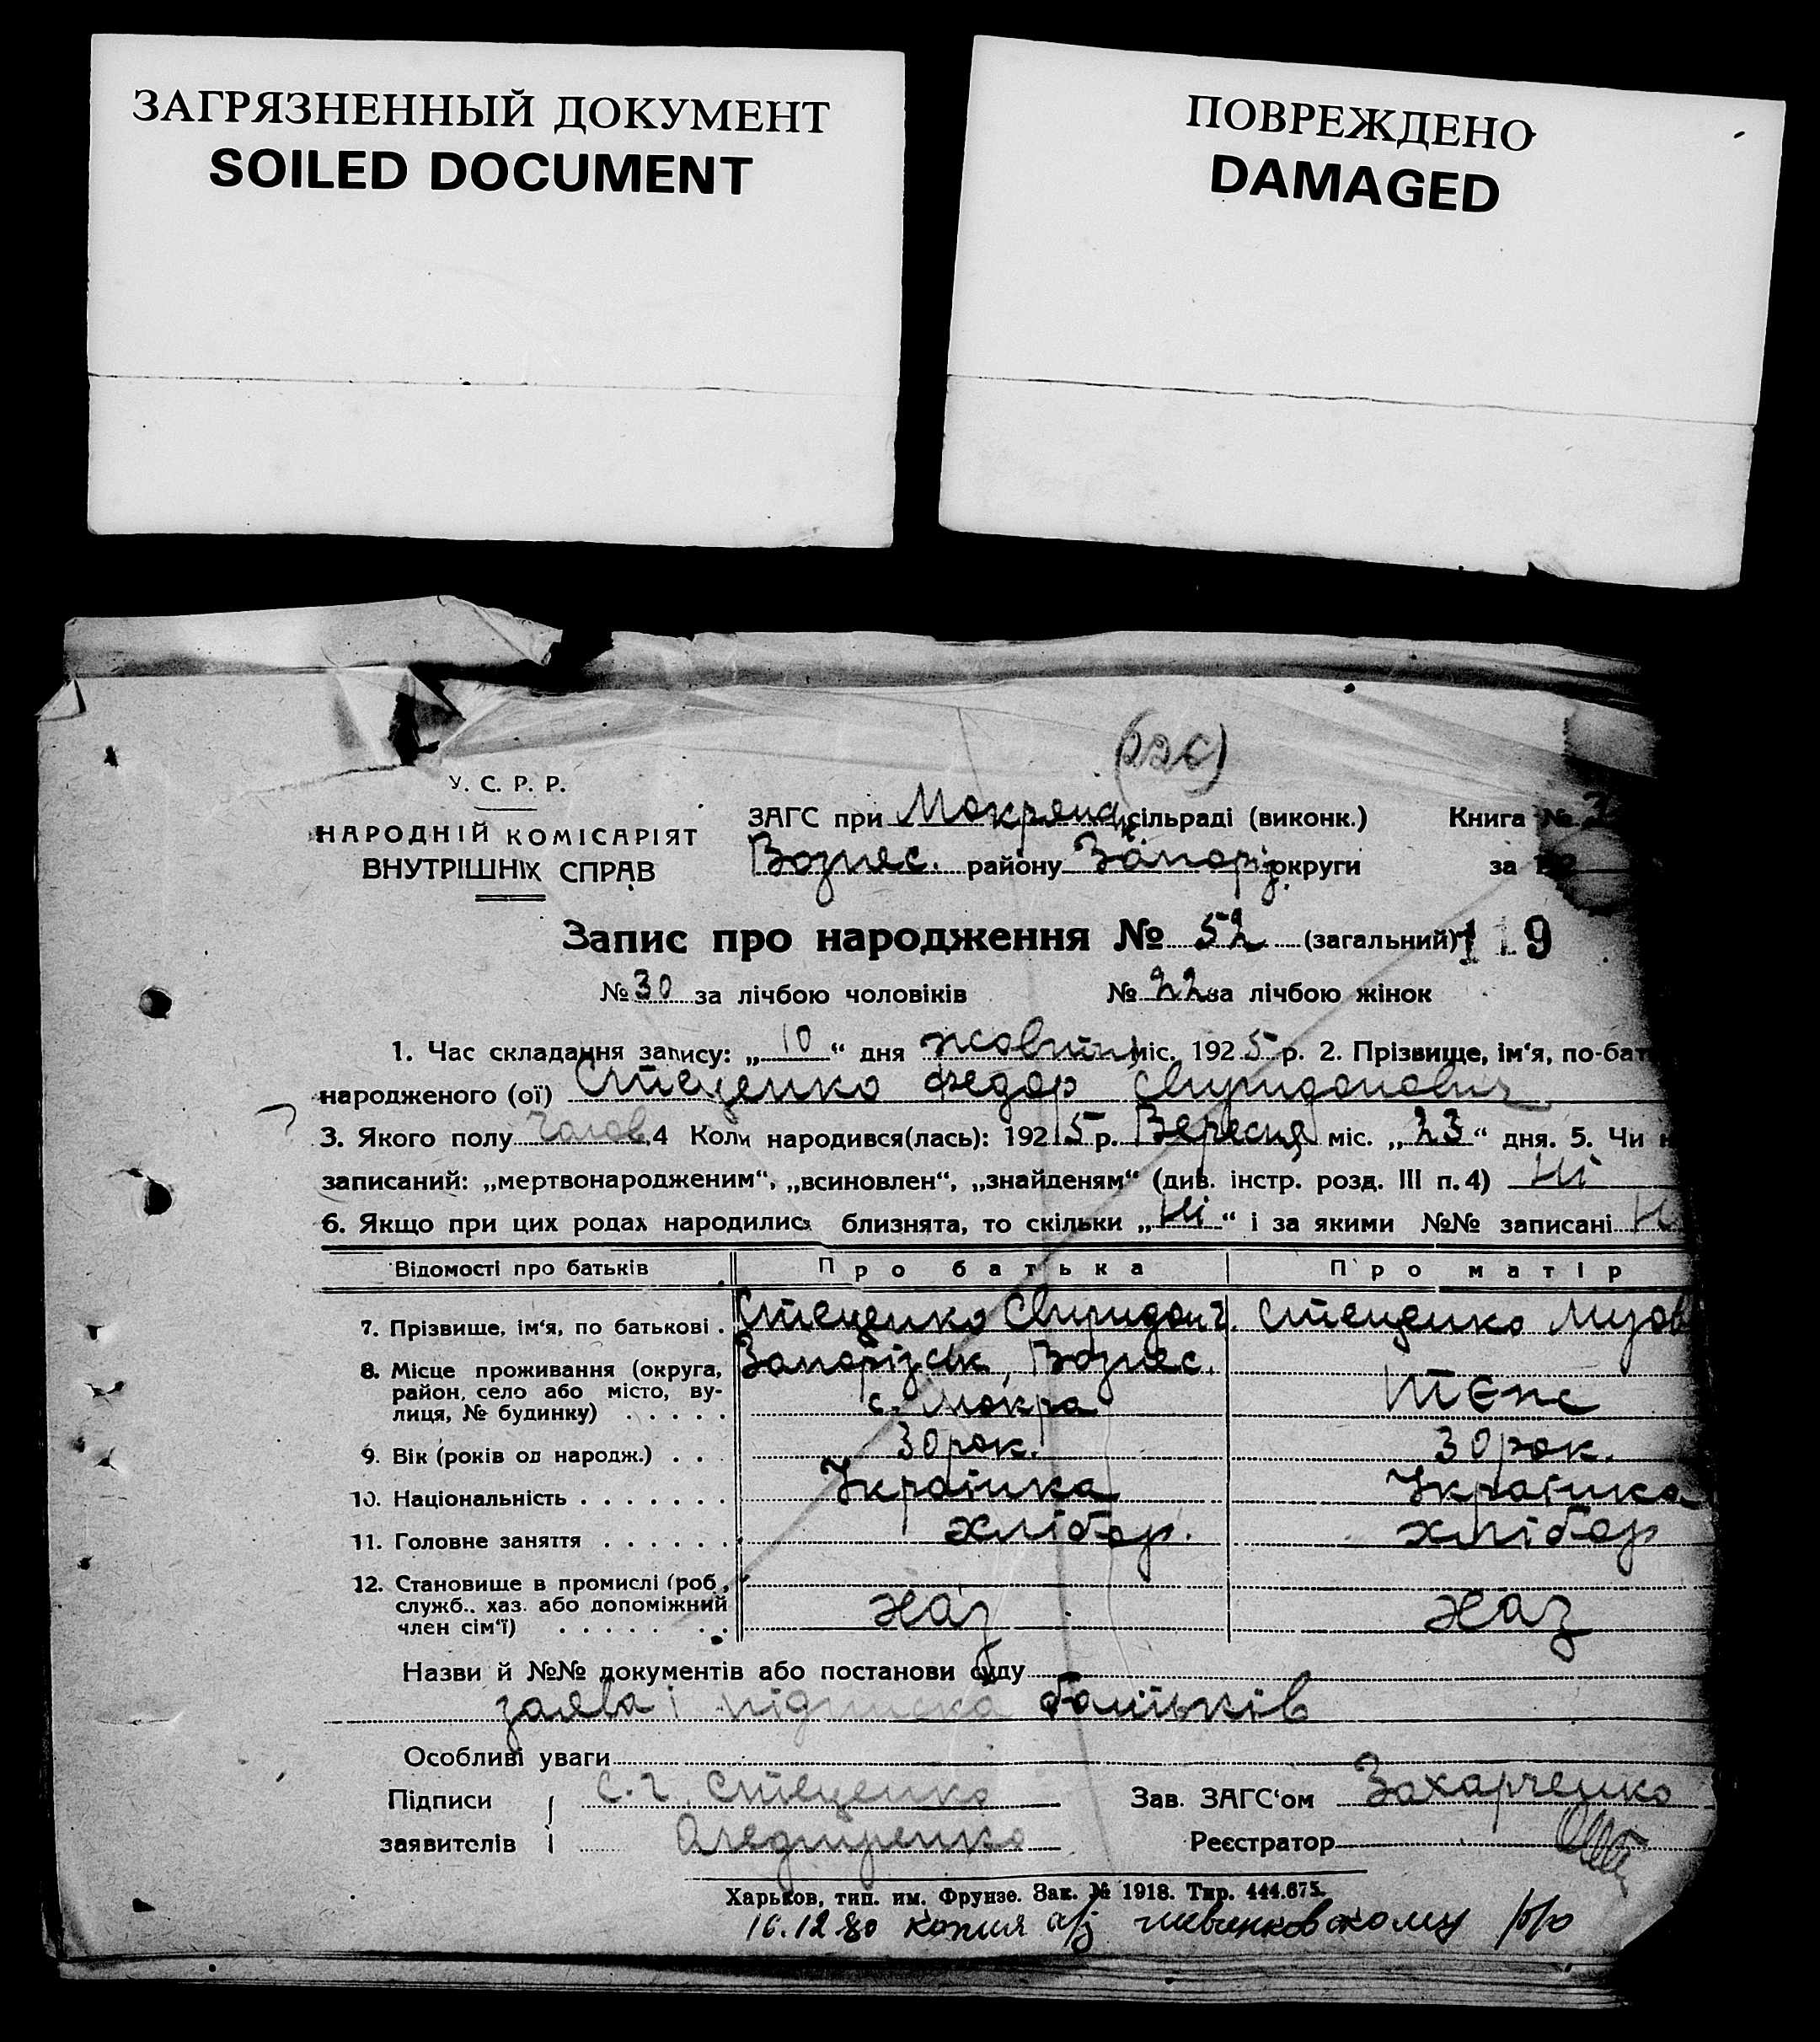 ЗАГРЯЗНЕННЫЙ ДОКУМЕНТ
SOILED DOCUMENT
ПОВРЕЖДЕНО
DAMAGED
У. С. Р. Р.
НАРОДНІЙ КОМІСАРІЯТ
ВНУТРІШНІХ СПРАВ
ЗАГС при Мокрянс. сільраді (виконк.) Книга №
Вознес. району Запоріз. округи за 192
Запис про народження № 52 (загальний) 119
№ 30 за лічбою чоловіків № 22 за лічбою жінок
1. Час складання запису: „10“ дня жовтня міс. 1925 р. 2. Прізвище, ім‘я, по-бат
народженого (ої) Стеценко Федор Свиридонович
3. Якого полу Чолов. 4 Коли народився(лась): 1925 р. Вересня міс. „23“ дня. 5. Чи н
записаний: „мертвонародженим“, „всиновлен“, „знайденям“ (див. інстр. розд. III п. 4) Ні
6. Якщо при цих родах народились близнята, то скільки „Ні“ і за якими №№ записані Н
Відомості про батьків Про батька Про матір
7. Прізвище, ім‘я, по батькові . Стеценко Свиридон Г. Стеценко
8. Місце проживання (округа, Запорізськ, Вознес.
район, село або місто, ву-
лиця, № будинку) . . . . . с. Мокра теж
9. Вік (років од народж.) . . . 30 рок. 30 рок.
10. Національність . . . . . . . Українка Українка
11. Головне заняття . . . . . . хлібор. хлібор
12. Становище в промислі (роб.,
служб., хаз. або допоміжний хаз хаз
член сім‘ї) . . . . . . . .
Назви й №№ документів або постанови суду
заява і підписка батьків
Особливі уваги
Підписи С. Г. Стеценко Зав. ЗАГС‘ом Захарченко
заявителів Реєстратор
Харьков, тип. им. Фрунзе. Зак. № 1918. Тир. 444.675.
16.12.80 копия а/з шевченковскому р/о